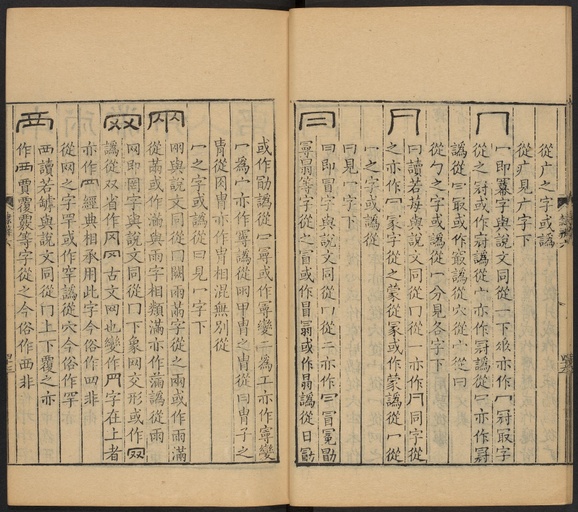 從广之字或譌
從疒見广字下
冖 冖即冪字與說文同從一下𠂹亦作冂冠冣字
從之冠或作𡨥譌從宀亦作冠譌從冃亦作𡨥
譌從冃取或作㝡譌從穴從宀從曰
從勹之字或譌從冖分見各字下
冃 冃讀若莓與說文同從冂從一亦作冃同字從
之亦作冖冡字從之蒙從冡或作蒙譌從冖從
一之字或譌從
冃見一字下
冃 冃即冒字與說文同從冂從二亦作冃冒冕勖
冣冐等字從之冒或作冒冕或作冕譌從日勖
或作勖譌從冖冣或作冣變二為工亦作冣變
一為宀亦作冣譌從兩甲冑之冑從冃冑子之
胄從肉冑亦作冑相混無別從
冖之字或譌從冃見一字下
㒳 㒳與說文同從冂闕兩滿字從之兩或作兩滿
從㒼或作滿與雨字相類滿亦作滿譌從雨
网 网即罔字與說文同從冂下象网交形或作网
譌從双省作冈冈古文网也變作罓字在上者
亦作罒經典相承用此字今俗作四非
從网之字罕或作䍐譌從穴今俗作罕
襾 襾讀若罅與說文同從冂上下覆之亦
作覀賈覆覈等字從之今俗作西非